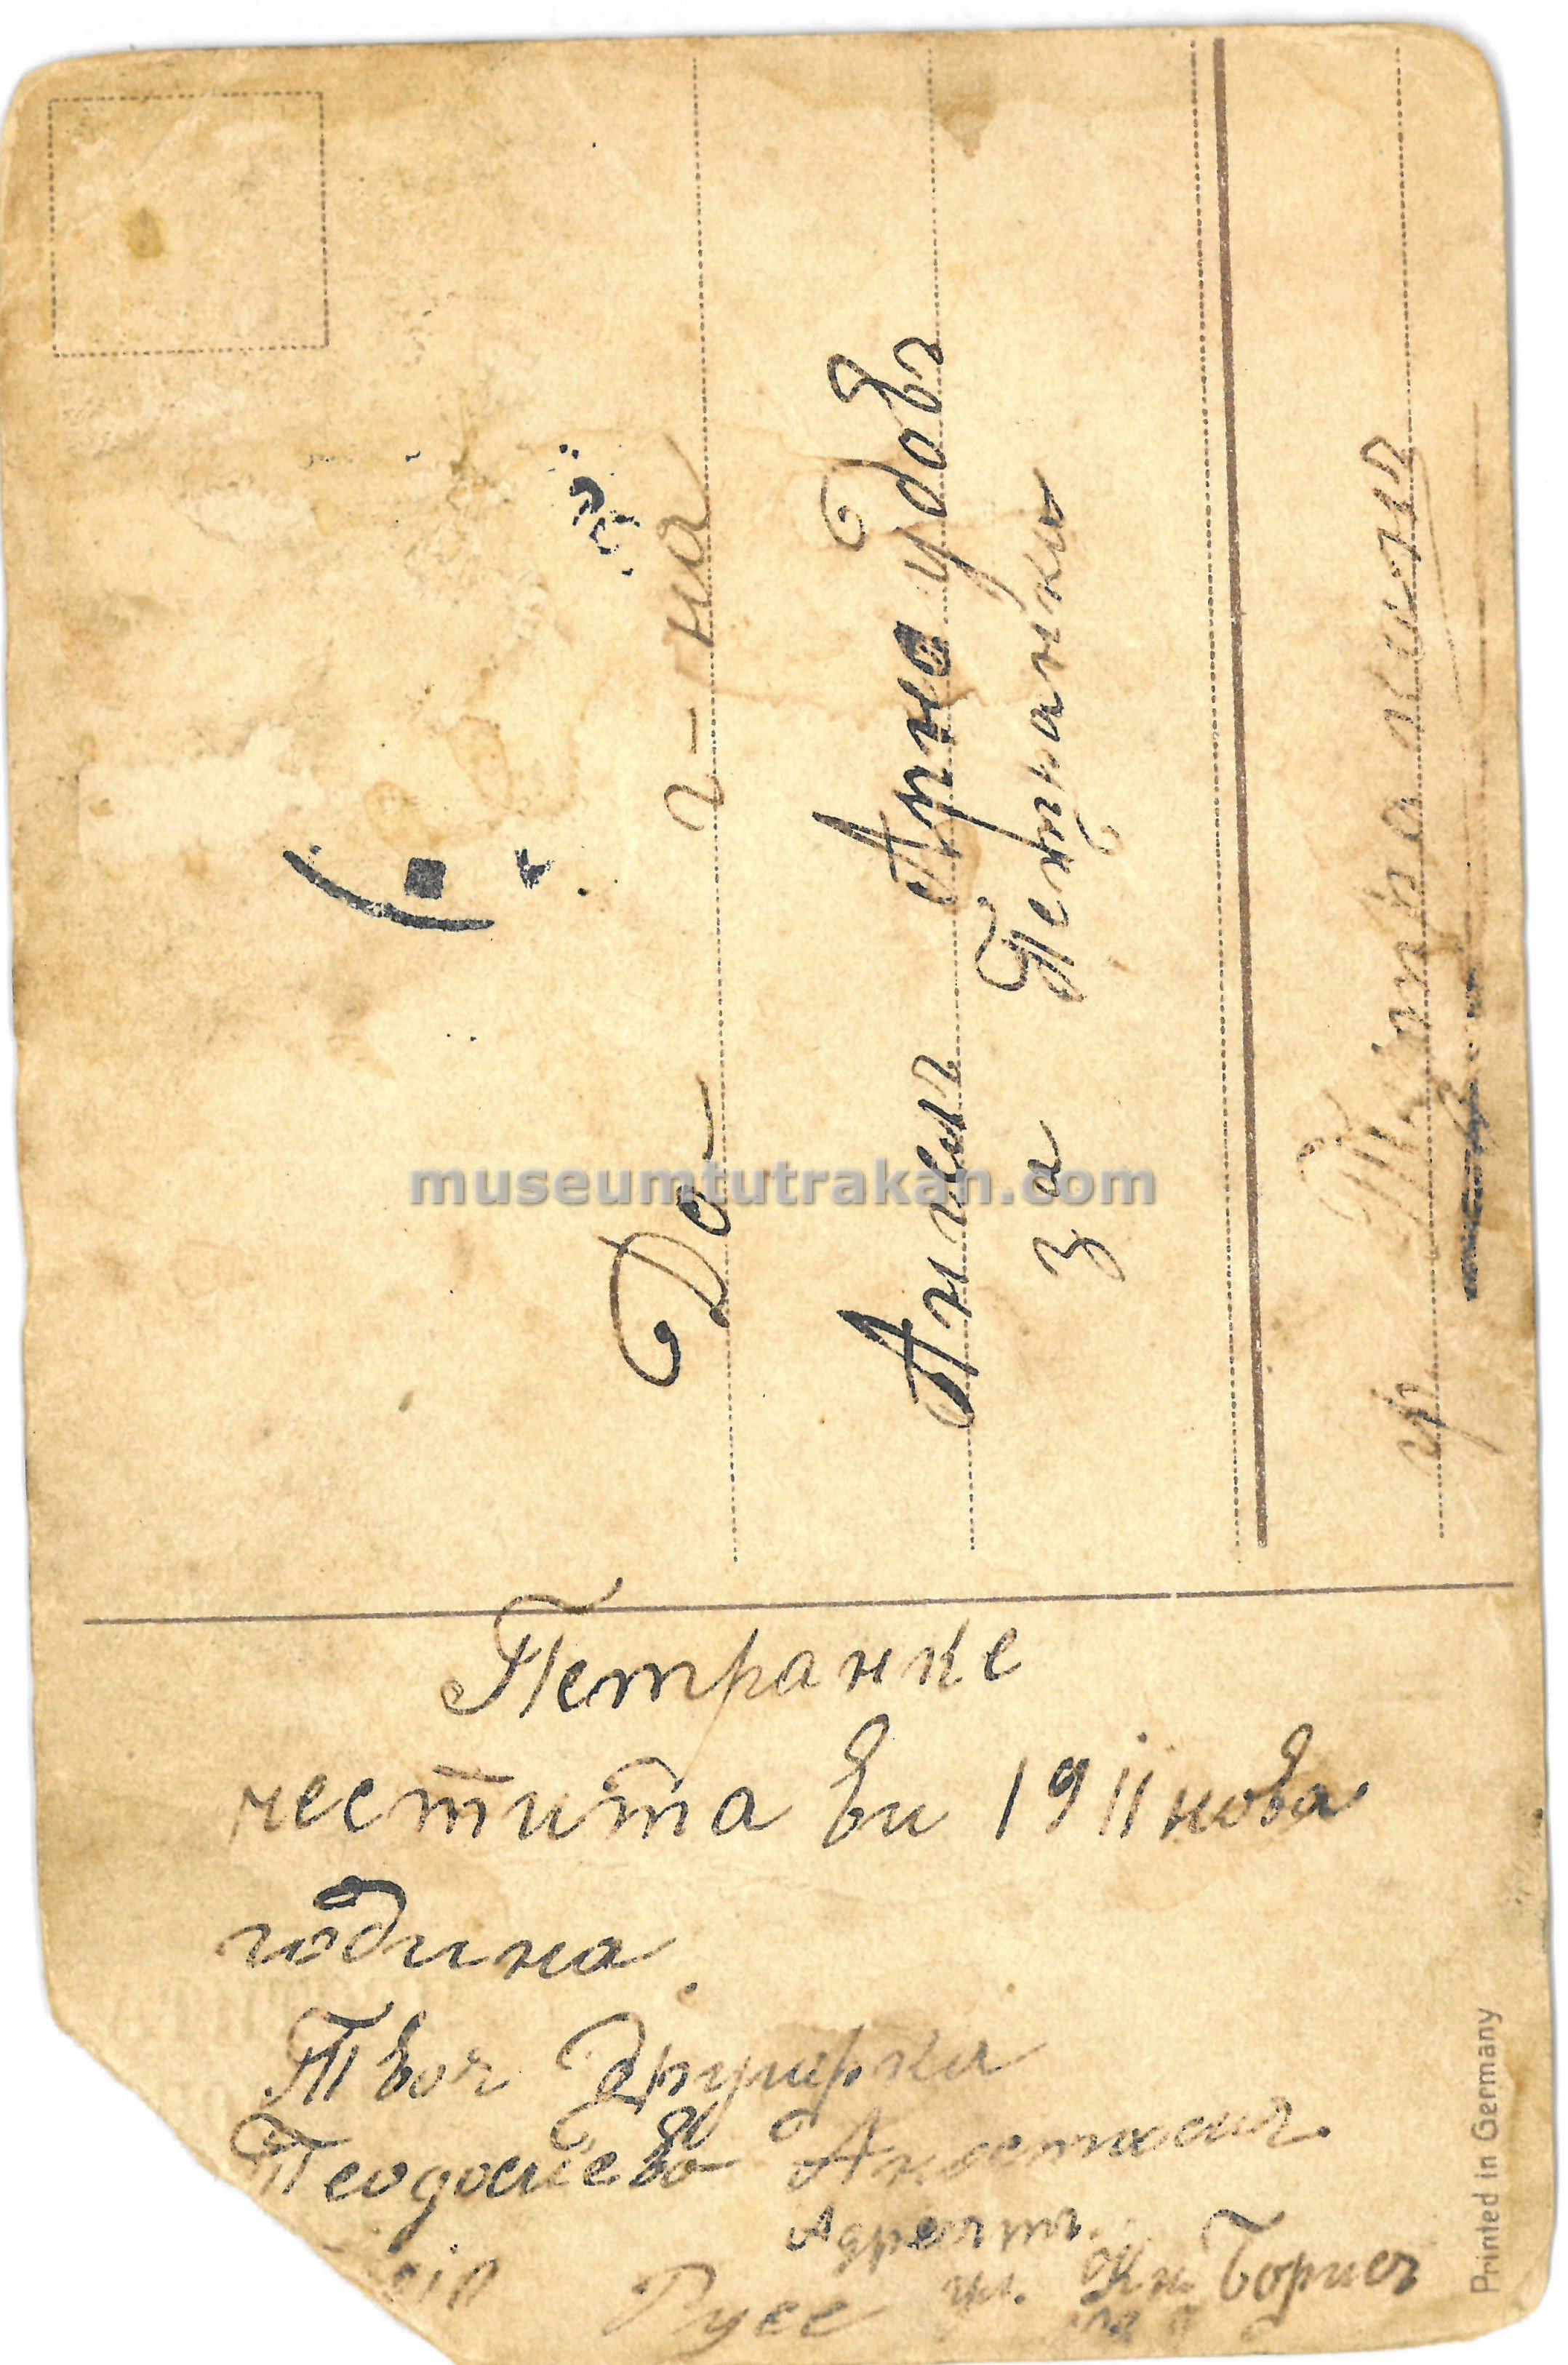 До г-на
Ангелъ Арнаудовъ
за Петранка
гр. Тутраканъ
Петранке
честита Ви 1911 нова
година.
Твоя другарка
Теодосиева Анастасия.
Адресътъ.
Русе ул. Кн. Борисъ
Printed in Germany
museumtutrakan.com